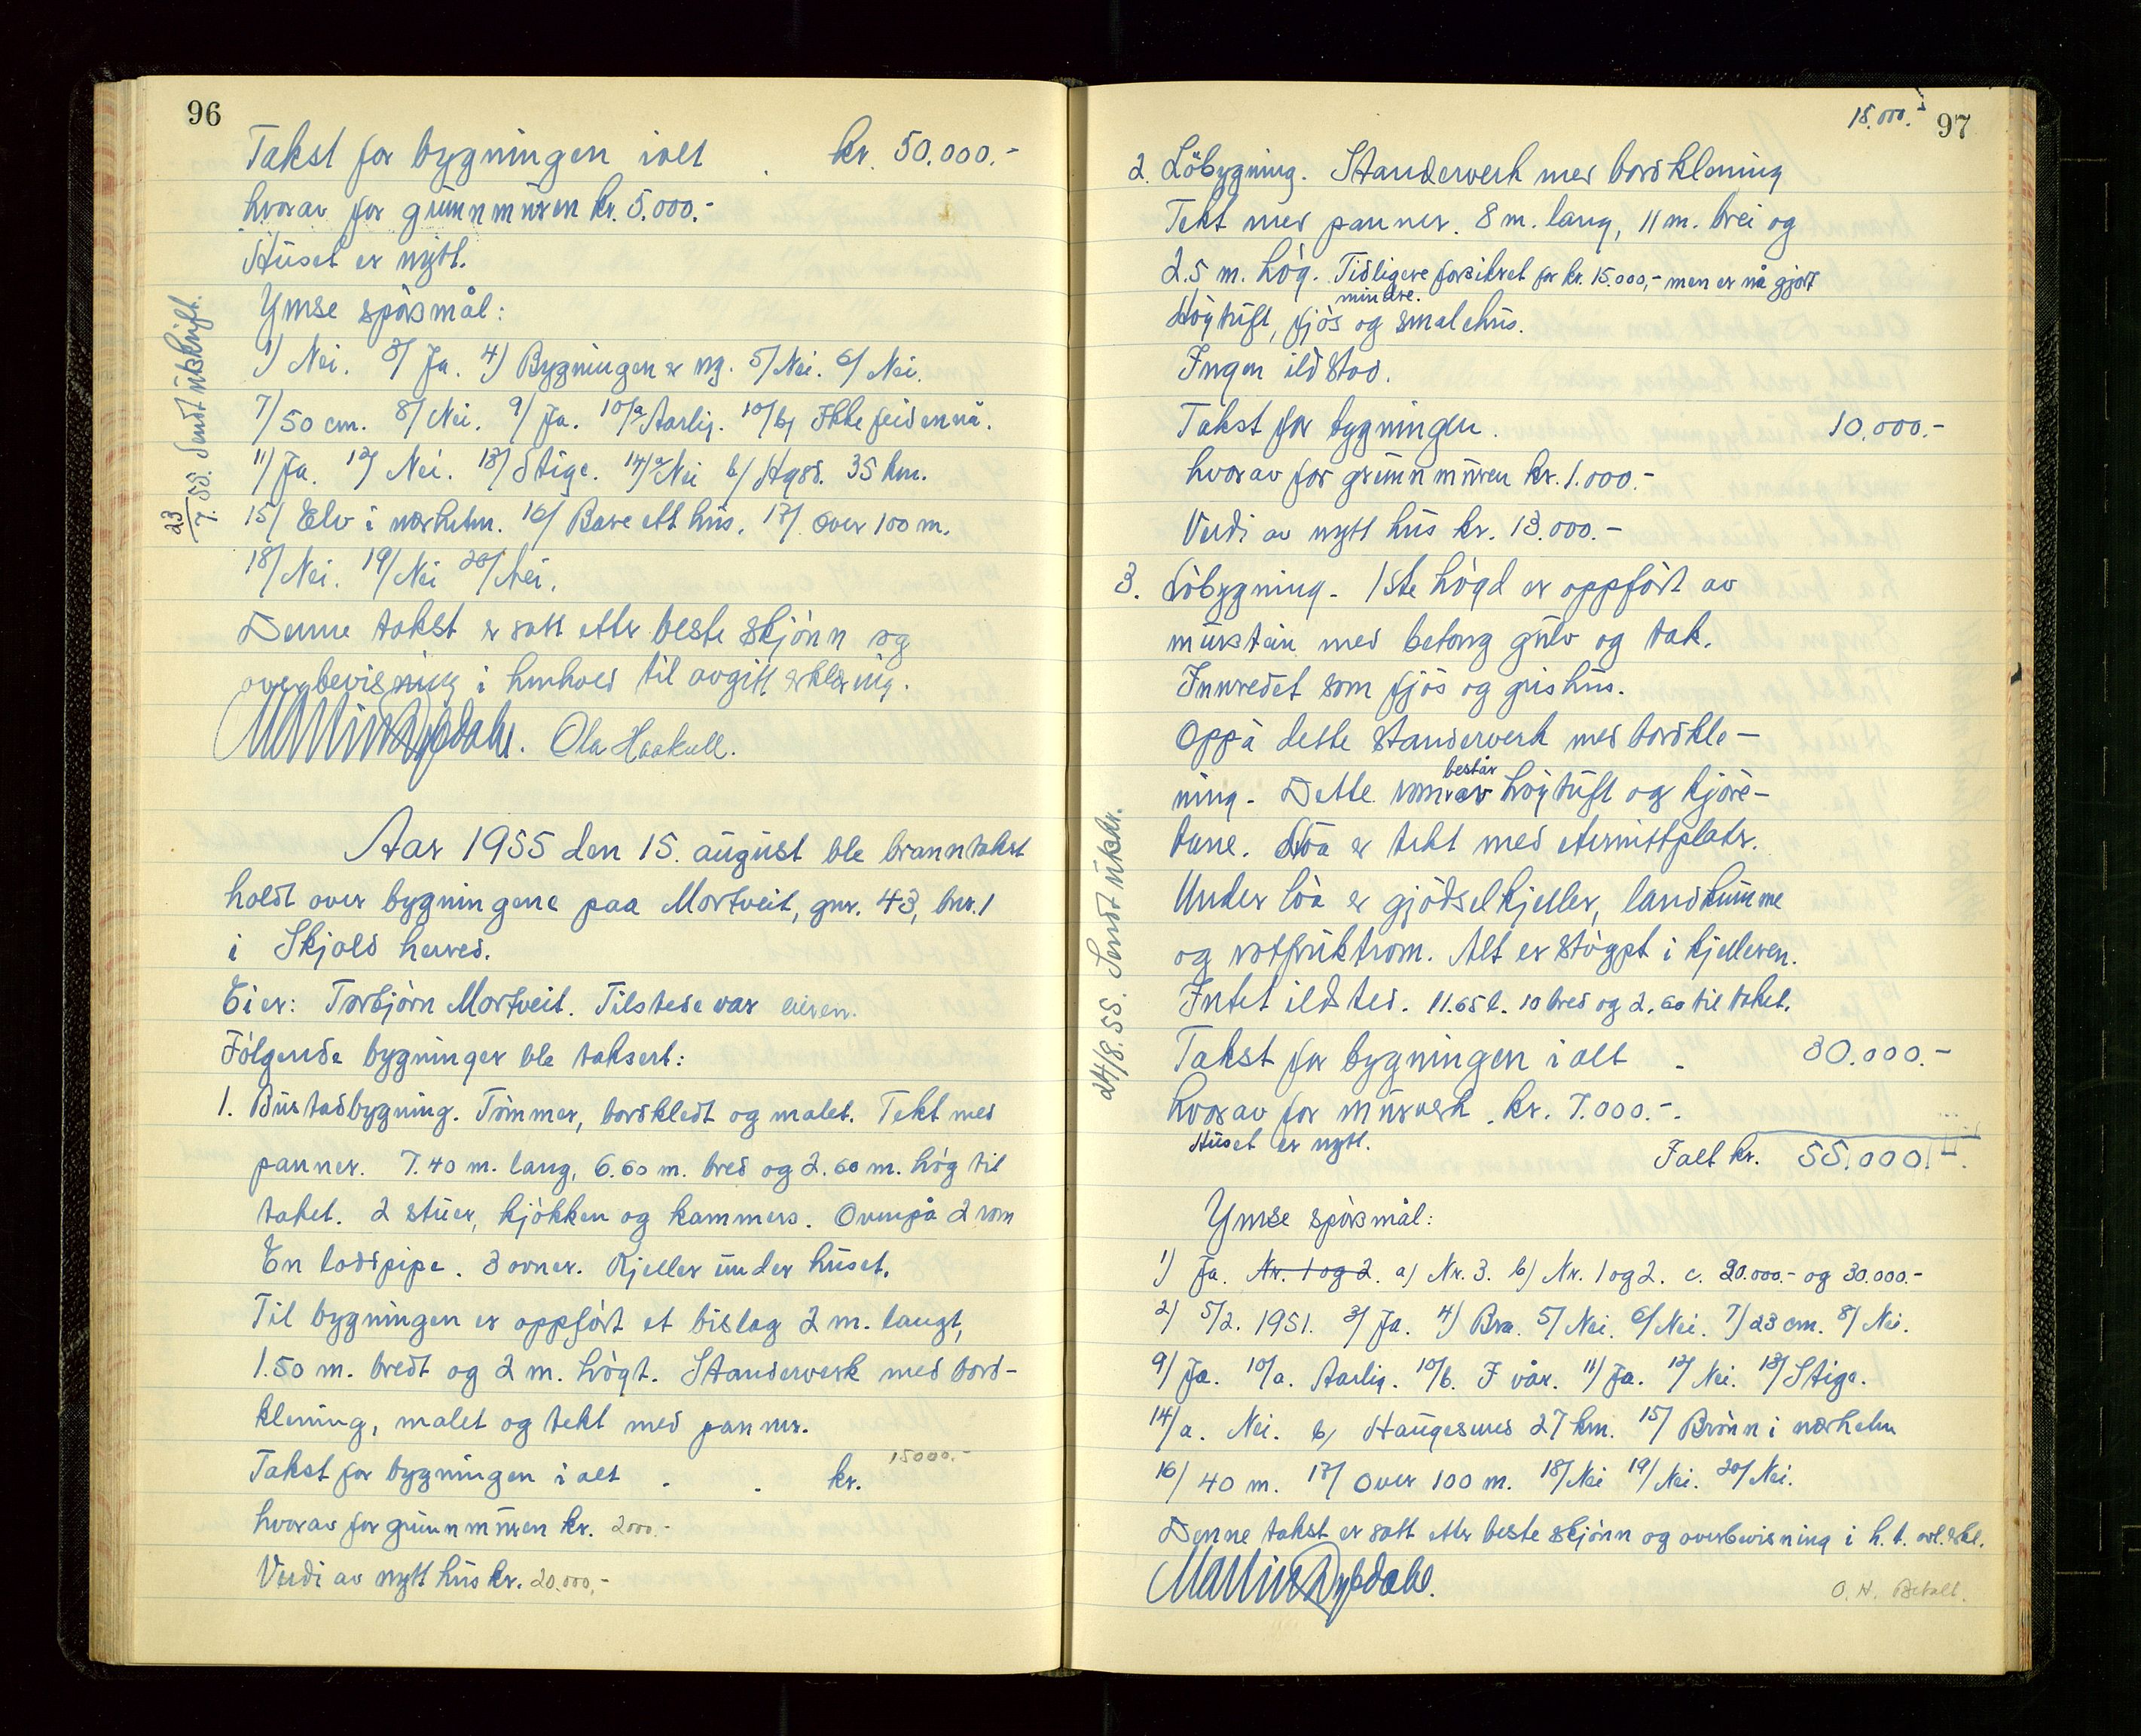 96
Takst for bygningen ialt . kr. 50.000.-
hvorav for grunnmuren kr. 5.000.-
Huset er nytt.
Ymse spörsmål:
1) Nei. 3/ Ja. 4) Bygningen er ny. 5/ Nei. 6/ Nei.
7/ 50 cm. 8/ Nei. 9/ Ja. 10/a Aarlig. 10/b) Ikke feid ennå.
11/ Ja. 12/ Nei. 13/ Stige. 14/a Nei b/ Hgsd. 35 km.
15/ Elv i nærheten. 16/ Bare ett hus. 17/ Over 100 m.
18/ Nei. 19/ Nei 20/ Nei.
Denne takst er satt etter beste skjönn og
overbevisning i henhold til avgitt erklæring.
Martin Dybdahl. Ola Haakull.
23/7.55. Sendt utskrift.
Aar 1955 den 15. august ble branntakst
holdt over bygningene paa Mortveit, gnr. 43, bnr. 1
i Skjold herred.
Eier: Torbjörn Mortveit. Tilstede var eieren.
Fölgende bygninger ble taksert:
1. Bustadbygning. Tömmer, bordkledt og malet. Tekt med
panner. 7.40 m. lang, 6.60 m. bred og 2.60 m. hög til
taket. 2 stuer, kjökken og kammers. Ovenpå 2 rom
En loddpipe. 3 ovner. Kjeller under huset.
Til bygningen er oppfört et bislag 2 m. langt,
1.50 m. bredt og 2 m. högt. Standerverk med bord-
kledning, malet og tekt med panner.
Takst for bygningen i alt . . kr. 15000.-
hvorav for grunnmuren kr. 2000.-
Verdi av nytt hus kr. 20.000,-
15.000.-
97
2. Löbygning. Standerverk med bordkledning
Tekt med panner. 8 m. lang, 11 m. brei og
2.5 m. hög. Tidligere forsikret for kr. 15.000,- men er nå gjort
mindre.
Höytuft, fjös og smalehus.
Ingen ildstod.
Takst for bygningen. 10.000.-
hvorav for grunnmuren kr. 1.000.-
Verdi av nytt hus kr. 13.000.-
3. Löbygning. 1ste högd er oppfört av
murstein med betong gulv og tak.
Innredet som fjös og grishus.
Oppå dette standerverk med bordkle-
ning. Dette rom består av höytuft og kjöre-
tune. Löa er tekt med eternittplater.
Under löa er gjödselkjeller, landkumme
og rotfruktrom. Alt er stöypt i kjelleren.
Intet ildsted. 11.65 l. 10 bred og 2.60 til taket.
Takst for bygningen i alt . 30.000.-
hvorav for murverk . kr. 7.000.-.
Huset er nytt.
Ialt kr. 55.000.-
24/8.55. Sendt utskr.
Ymse spörsmål:
1) Ja. Nr. 1 og 2. a) Nr. 3. b) Nr. 1 og 2. c. 20.000.- og 30.000.-
2) 5/2. 1951. 3/ Ja. 4) Bra. 5/ Nei. 6/ Nei. 7/ 23 cm. 8/ Nei.
9/ Ja. 10/a. Aarlig. 10/b. I vår. 11) Ja. 12/ Nei. 13/ Stige.
14/a. Nei. b, Haugesund 27 km. 15/ Brönn i nærheten
16/ 40 m. 17/ Over 100 m. 18/ Nei 19/ Nei. 20/ Nei.
Denne takst er satt etter beste skjönn og overbevisning i h. t. avl. erkl.
Martin Dybdahl.
O. H. Betalt.